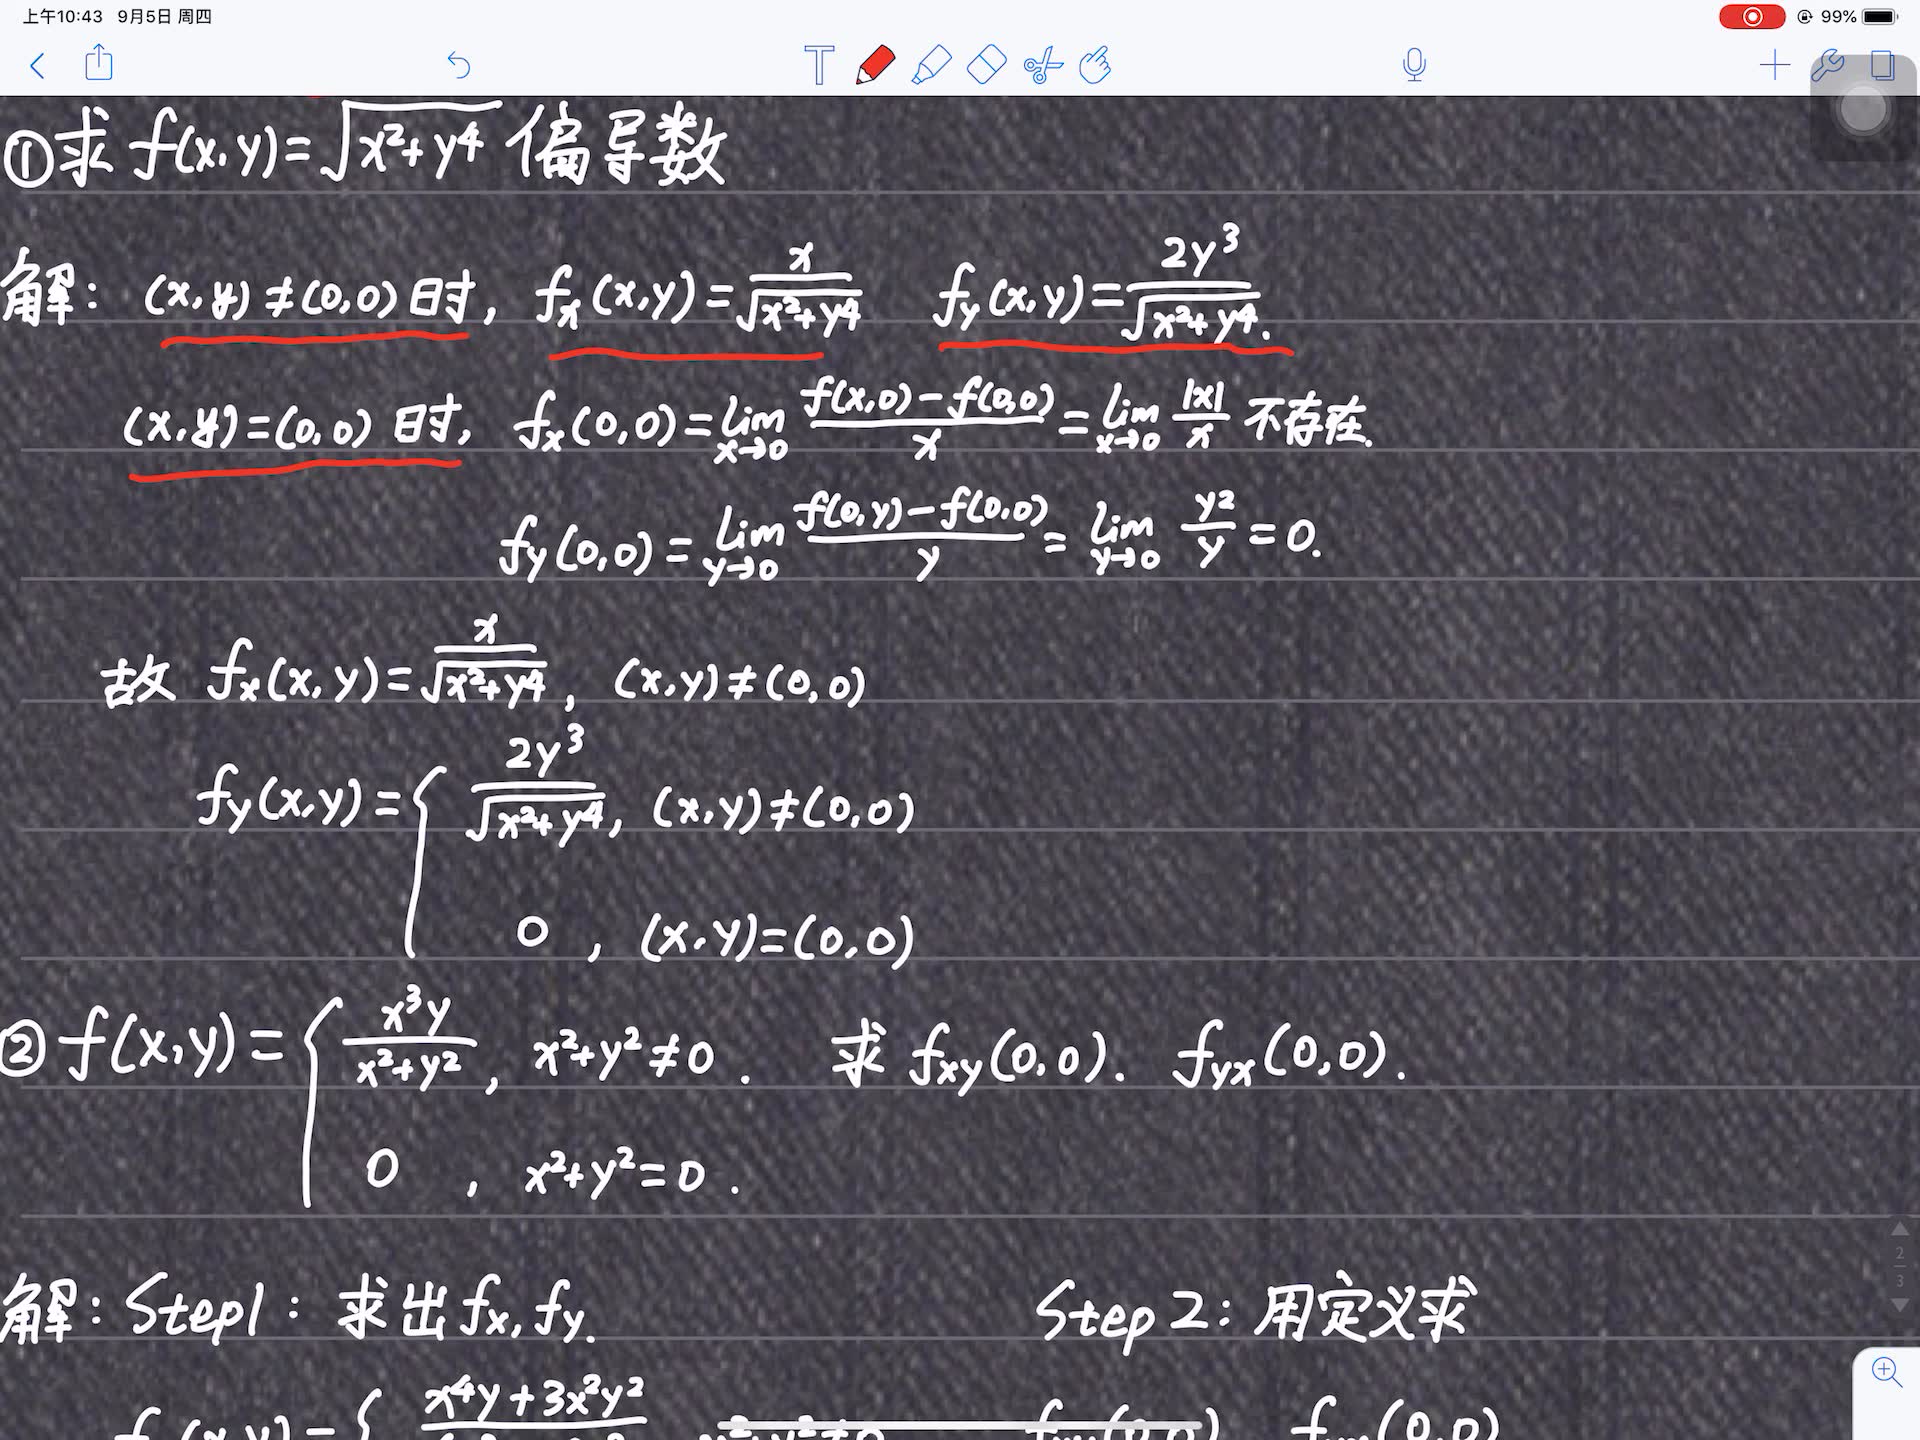 上午10:43 9月5日 周四 99%
①求 f(x,y)=√(x²+y⁴) 偏导数
解: (x,y)≠(0,0)时, fₓ(x,y)=x/√(x²+y⁴) f_y(x,y)=2y³/√(x²+y⁴).
(x,y)=(0,0)时, fₓ(0,0)=lim x→0 (f(x,0)-f(0,0))/x = lim x→0 |x|/x 不存在.
f_y(0,0)=lim y→0 (f(0,y)-f(0,0))/y = lim y→0 y²/y =0.
故 fₓ(x,y)=x/√(x²+y⁴), (x,y)≠(0,0)
f_y(x,y)={ 2y³/√(x²+y⁴), (x,y)≠(0,0)
0, (x,y)=(0,0)
②f(x,y)={ x³y/(x²+y²), x²+y²≠0. 求 f_xy(0,0). f_yx(0,0).
0, x²+y²=0.
2
3
解: Step1: 求出fₓ, f_y. Step 2: 用定义求
x⁴y+3x²y²